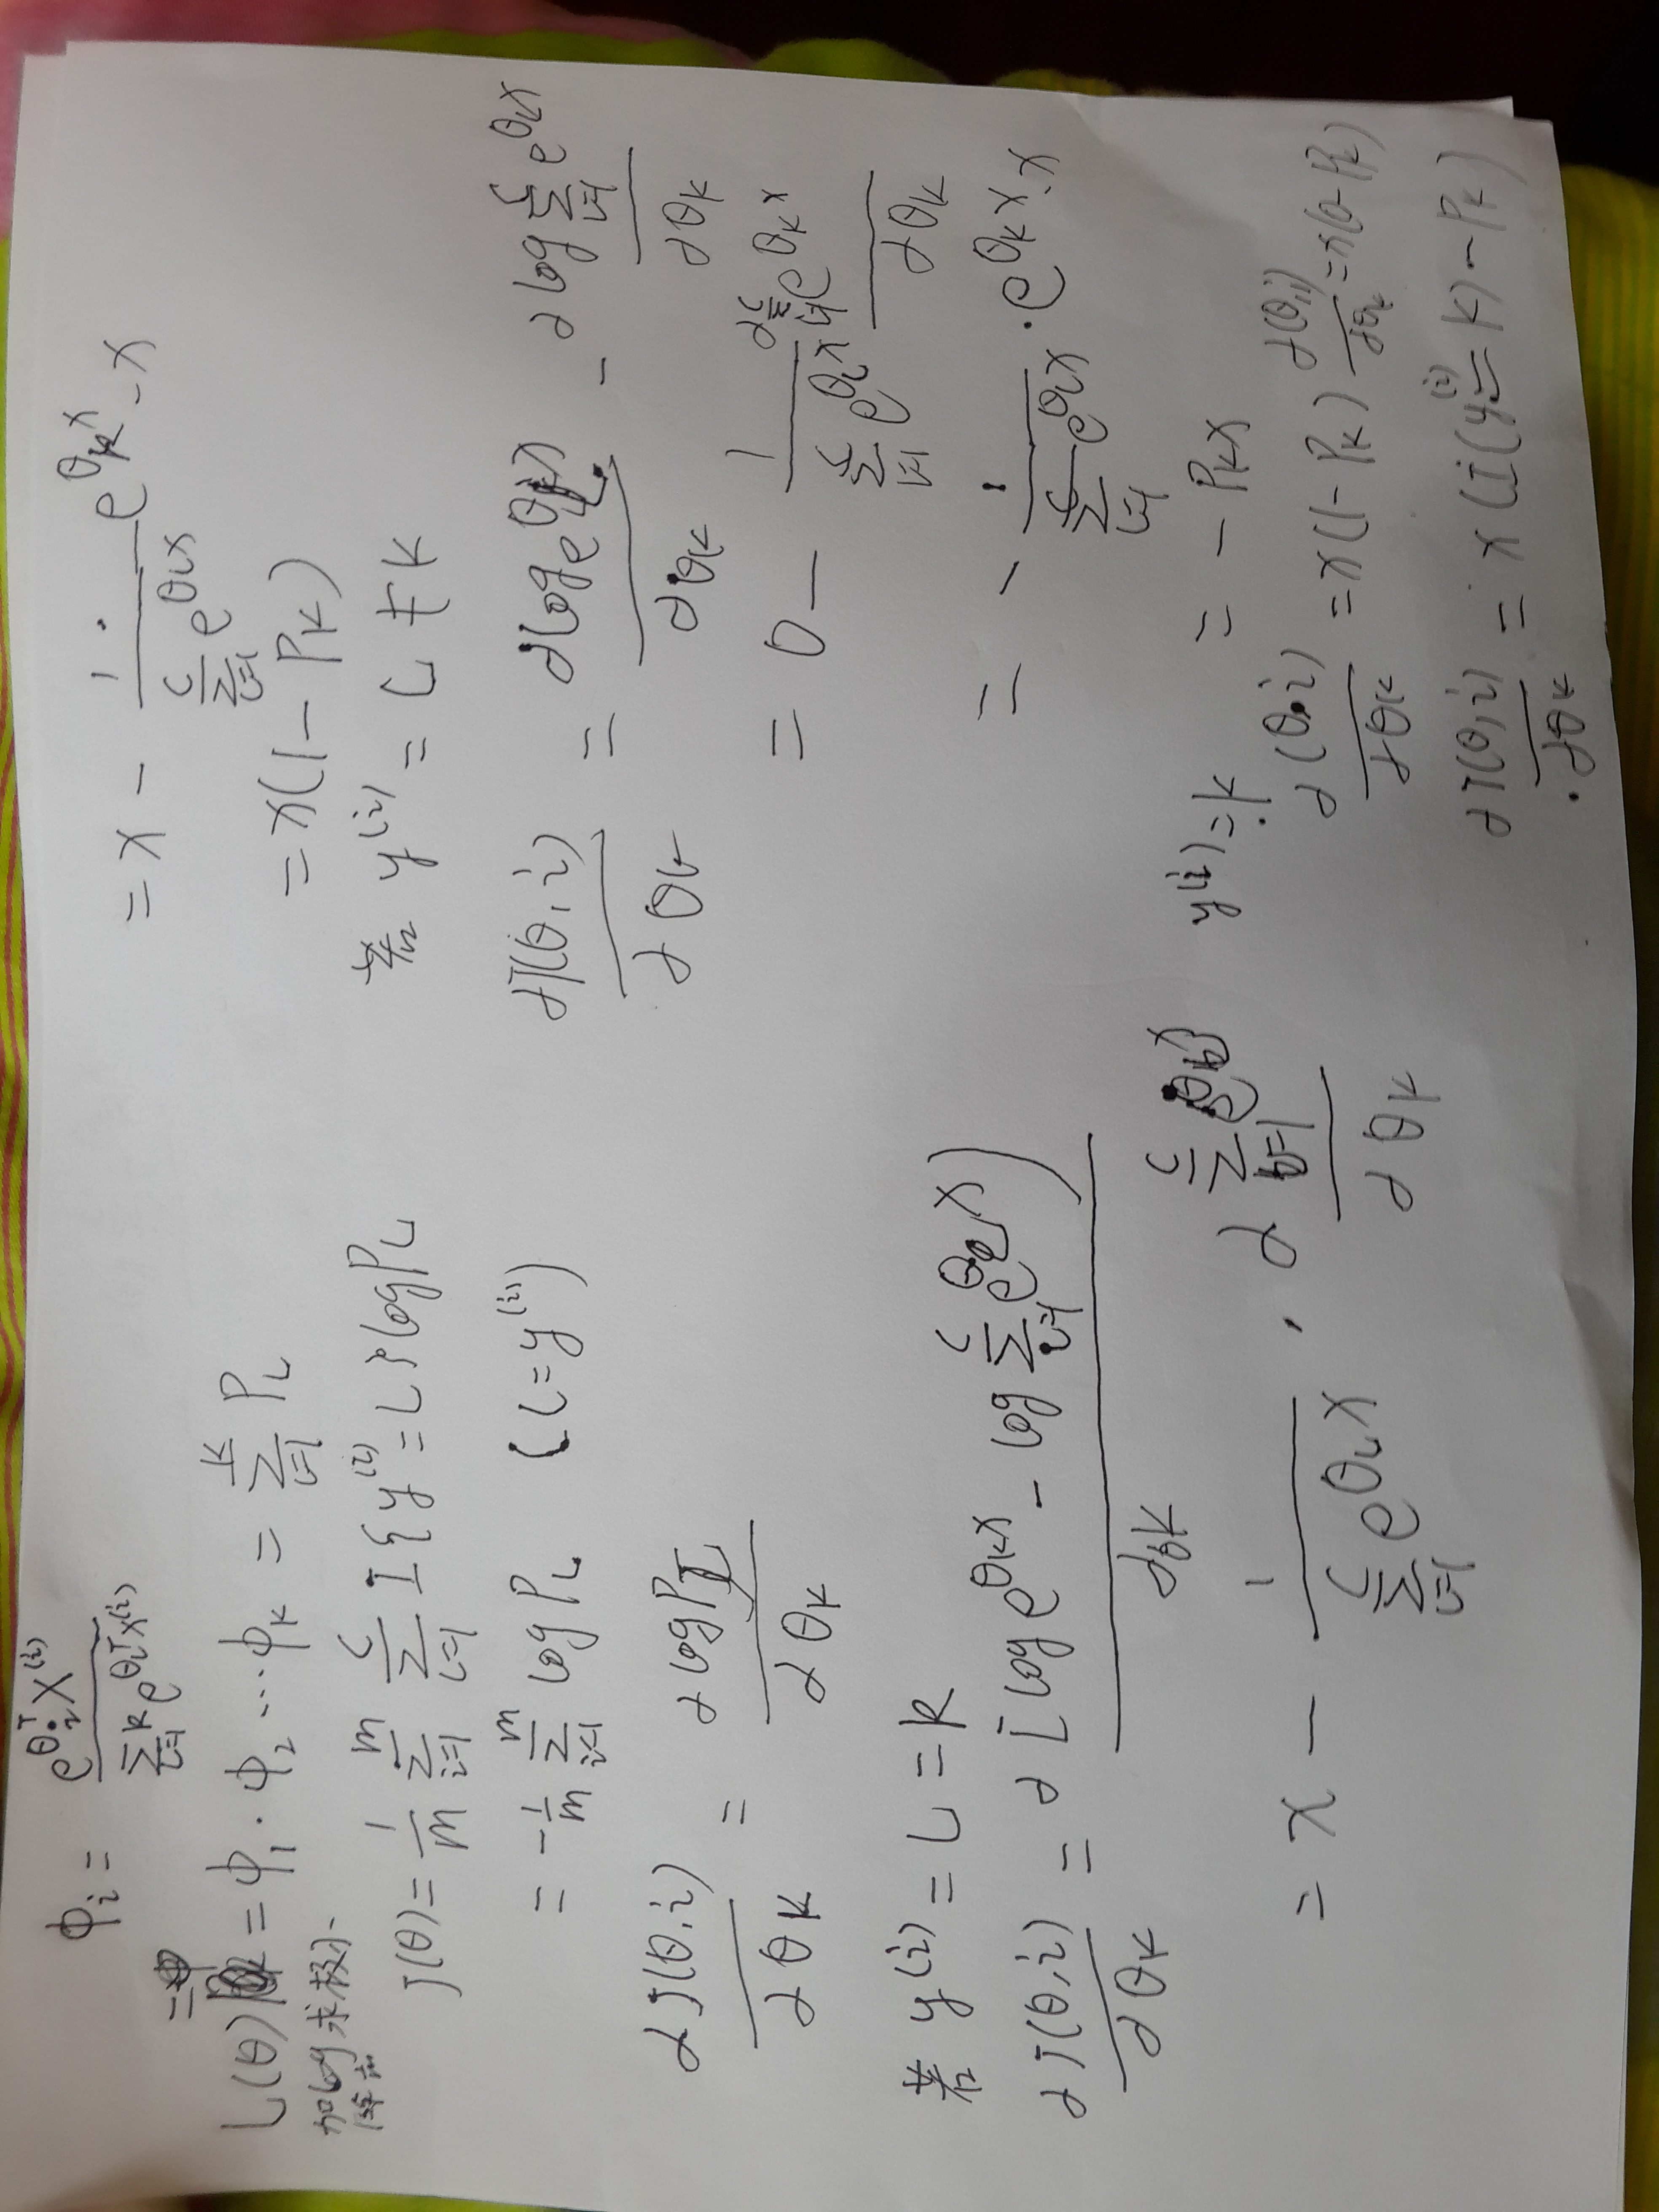 φi = e^{θi^T x^{(i)}} / Σ_{l=1}^{k} e^{θl^T x^{(i)}}
L(θ) = φ1 · φ2 ... φk = Σ_{l=1}^{k} PL
加log求极
J(θ) = 1/m Σ_{i=1}^{m} Σ_{l=1}^{c} I{y^{(i)} = L} log PL
= -1/m Σ_{i=1}^{m} log PL (L = y^{(i)})
∂J(θ,i) / ∂θk = ∂log PL / ∂θk
若 y^{(i)} = L = k
∂J(θ,i) / ∂θk = ∂[log e^{θk x} - log Σ_{l=1}^{c} e^{θl x}) / ∂θk
= x - 1 / Σ_{l=1}^{c} e^{θl x} · ∂ Σ_{l=1}^{c} e^{θl x} / ∂θk
= x - 1 / Σ_{l=1}^{c} e^{θl x} · e^{θk x} · x
= x(1 - Pk)
若 y^{(i)} = L ≠ k
∂J(θ,i) / ∂θk = ∂log e^{θl x} / ∂θk - ∂log Σ_{l=1}^{c} e^{θl x} / ∂θk
= 0 - 1 / Σ_{l=1}^{c} e^{θl x} ∂ Σ_{l=1}^{c} e^{θk x} / ∂θk
= - 1 / Σ_{l=1}^{c} e^{θl x} · e^{θk x} · x
= - Pk x
y^{(i)} = k
∂(θ,i) / ∂θk = x(1 - Pk) ∂(θ,i) / ∂θk = x(0 - Pk)
∂J(θ,i) / ∂θk = x(I(y^{(i)} = k) - Pk)